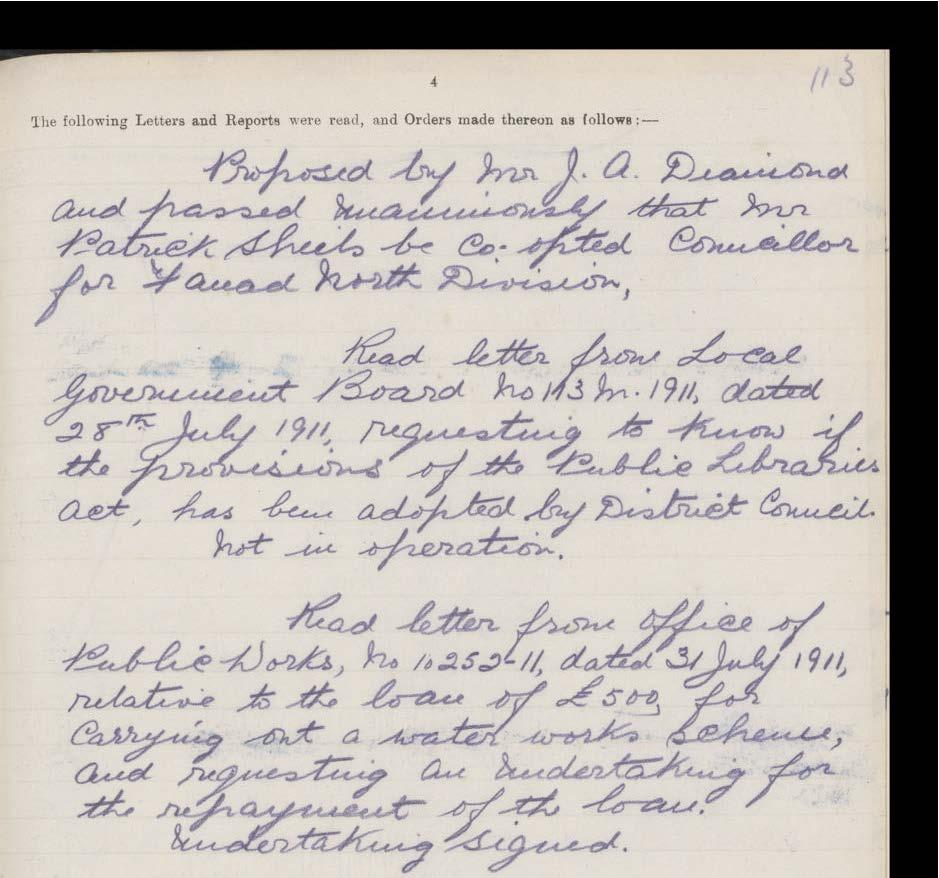 113
4
The following Letters and Reports were read, and Orders made thereon as follows:—
Proposed by Mr J. A. Diamond
and passed unanimously that Mr
Patrick Sheils be Co-opted Councillor
for Fanad North Division,
Read letter from Local
Government Board No 113 M. 1911, dated
28th July 1911, requesting to know if
the provisions of the Public Libraries
Act, has been adopted by District Council.
Not in operation.
Read letter from Office of
Public Works, No 10252-11, dated 31 July 1911,
relative to the loan of £500, for
Carrying out a water works scheme,
and requesting an undertaking for
the repayment of th loan.
Undertaking signed.